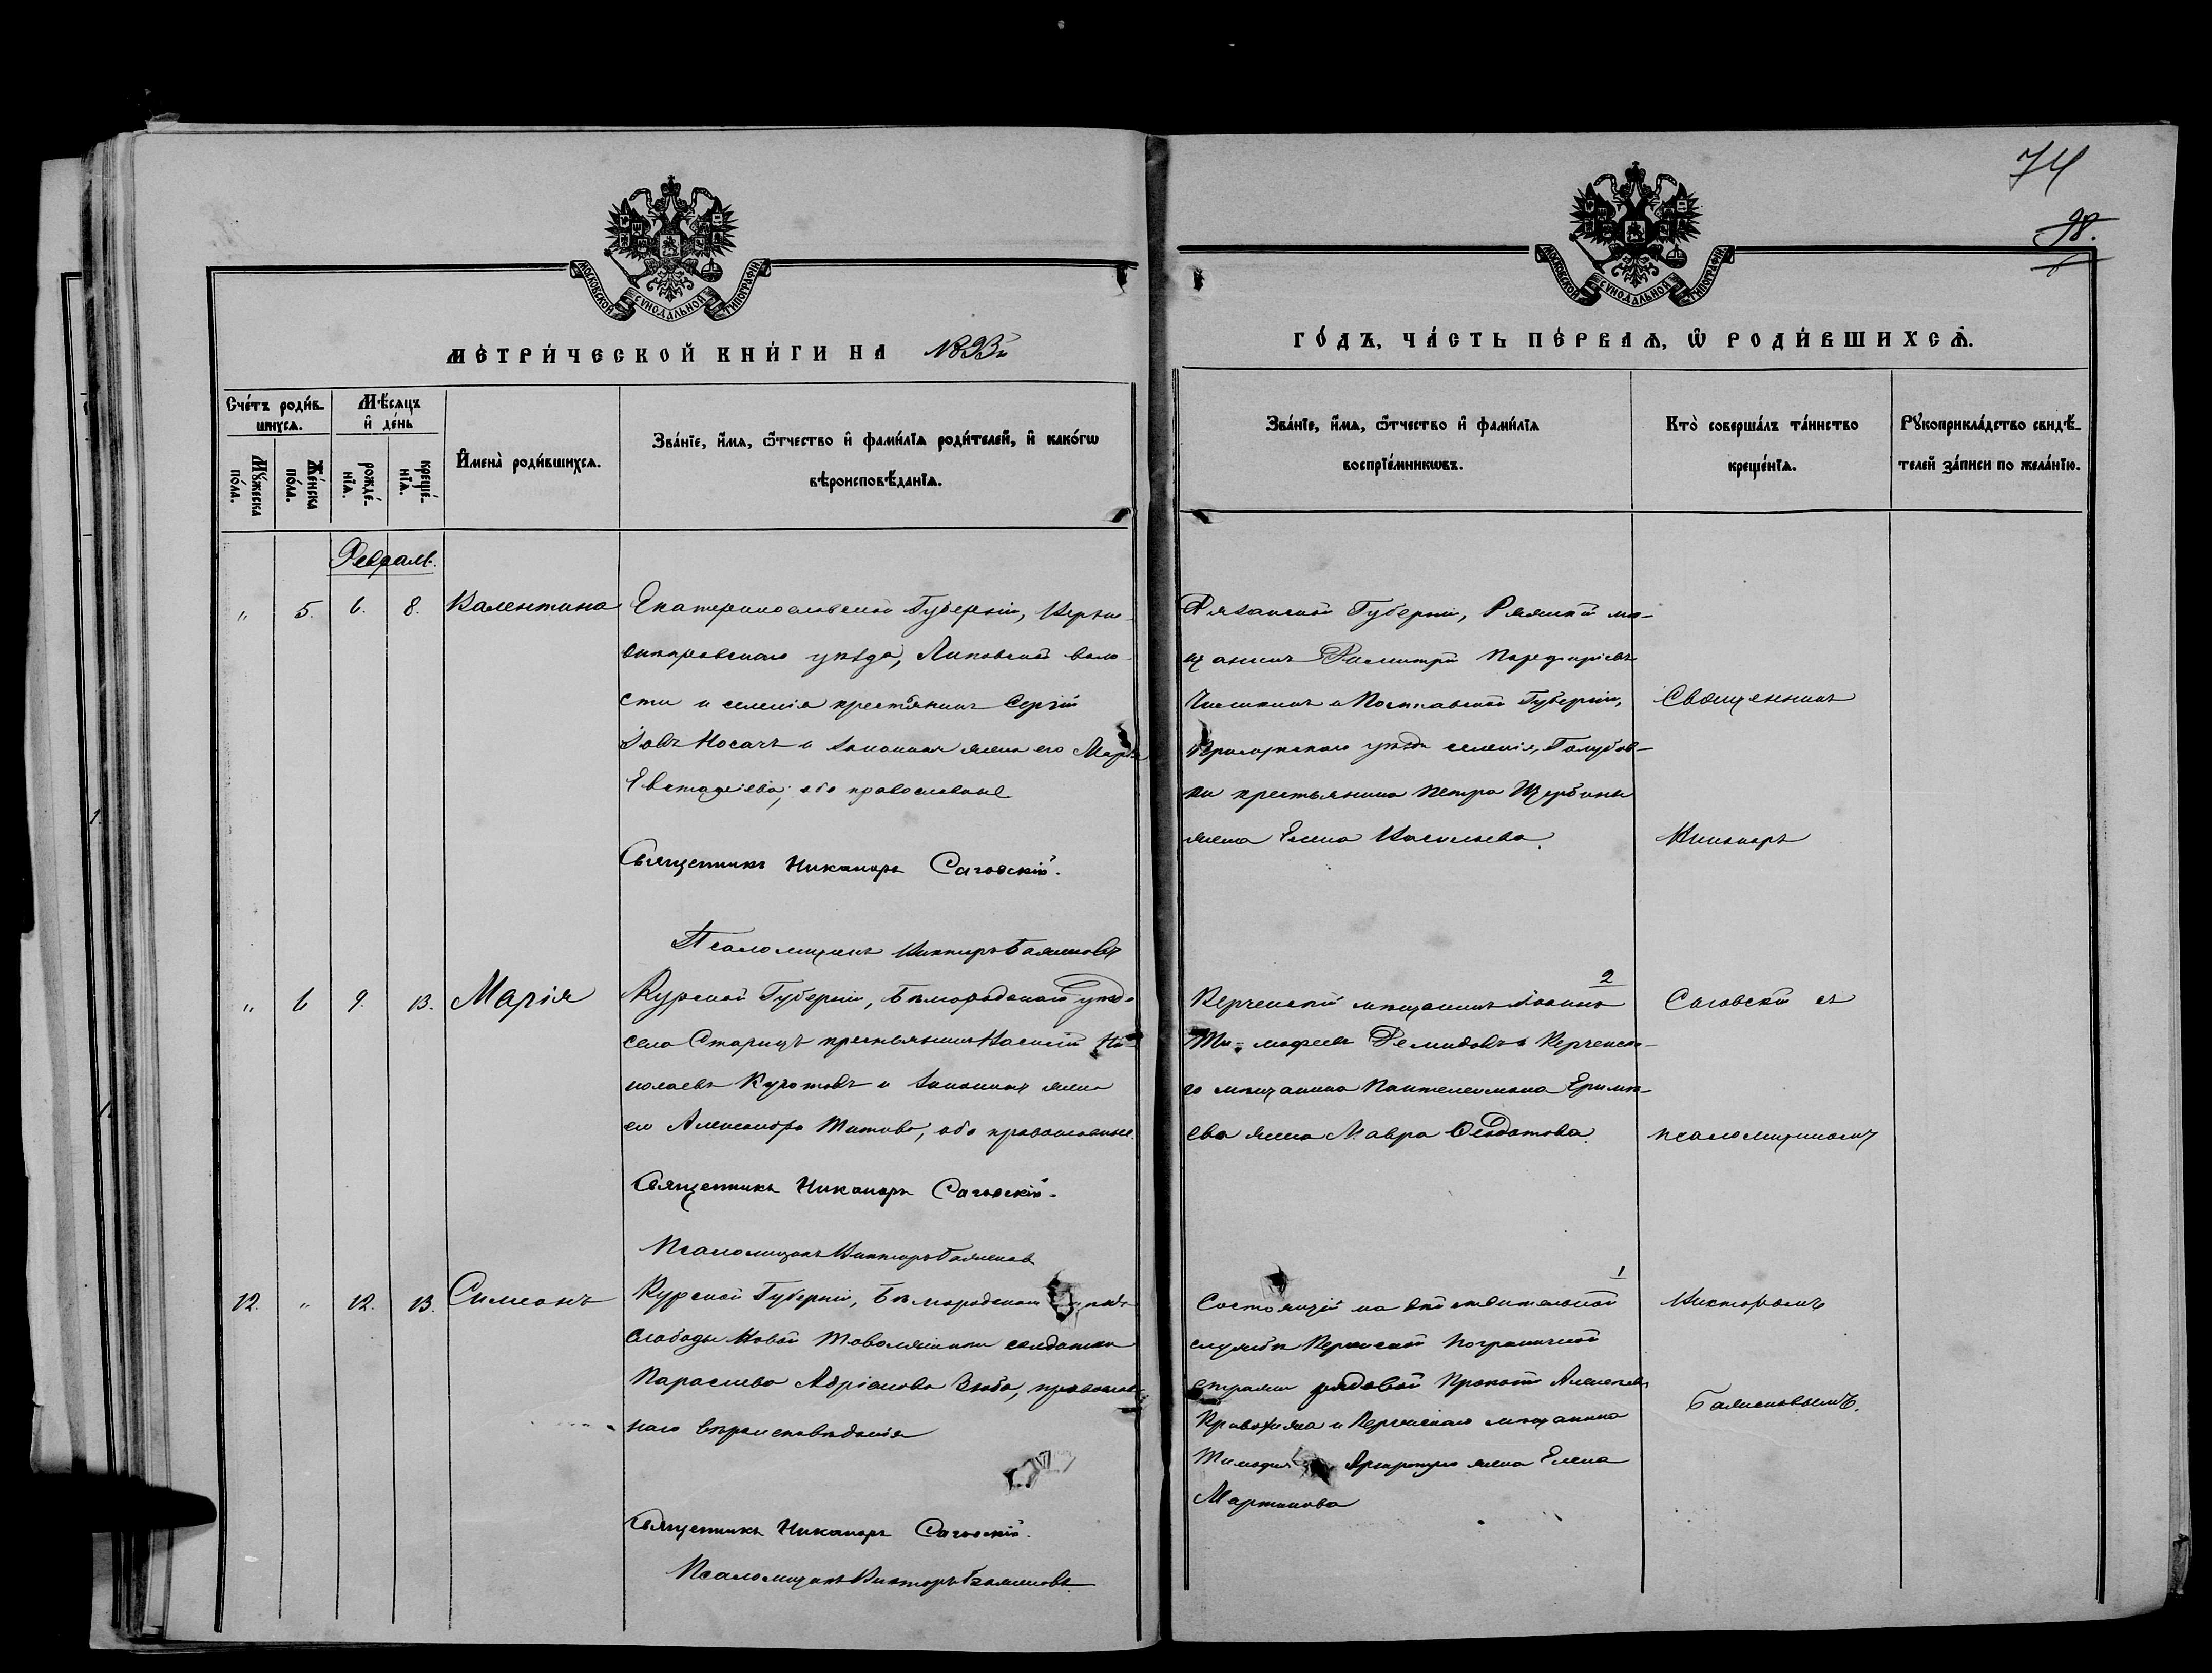 74
98.
МОСКОВСКОЙ СѴНОДАЛЬНОЙ ТИПОГРАФІИ
МОСКОВСКОЙ СѴНОДАЛЬНОЙ ТИПОГРАФІИ
МЕТРИ́ЧЕСКОЙ КНИ́ГИ НА 1893й
ГО́ДЪ, ЧА́СТЬ ПЕ́РВАѦ, Ѡ РОДИ́ВШИХСѦ.
Сче́тъ роди́в-
шихсѧ.
Мꙋ́жеска по́ла.
Же́нска по́ла.
Мѣ́сѧцъ
и҆ де́нь
рожде́-нїѧ.
креще́-нїѧ.
И҆мена̀ роди́вшихсѧ.
Зва́нїе, и҆́мѧ, ѻ҆́тчество и҆ фами́лїѧ роди́телей, и҆ како́гѡ
вѣроисповѣ́данїѧ.
Зва́нїе, и҆́мѧ, ѻ҆́тчество и҆ фами́лїѧ
воспрїе́мникѡвъ.
Кто̀ соверша́лъ та́инство
креще́нїѧ.
Рꙋкоприкла́дство свидѣ́-
телей за́писи по жела́нїю.
Февраль.
" 5. 6. 8. Валентина
Екатеринославской Губерніи, Верхне-
днѣпровскаго уѣзда, Липовской воло-
сти и селенія крестьянинъ Сергій
Іовъ Носачъ и законная жена его Марія
Евстафіева, оба православные
Священникъ Никаноръ Саговскій.
Псаломщикъ Викторъ Баженовъ
Рязанской Губерніи, Ряжскій мѣ-
щанинъ Димитрій Порфиріевъ
и Полтавской Губерніи,
уѣзда селенія, Голубов-
ки крестьянина Петра Щербины
жена Елена Васильева.
Священникъ
Никаноръ
" 6 9. 13. Марія
Курской Губерніи, Бѣлгородскаго уѣзда
села Старицъ крестьянинъ Василій Ни-
колаевъ и законная жена
его Александра Титова, оба православные.
Священникъ Никаноръ Саговскій.
Псаломщикъ Викторъ Баженовъ
2
Керченскій мѣщанинъ Іоаннъ
Ти-мофеевъ Демидовъ и Керченска-
го мѣщанина Пантелеимона
ева жена Мавра Ѳеодотова.
Саговскій съ
псаломщикомъ
12. " 12. 13. Симеонъ
Курской Губерніи, Бѣлгородскаго уѣзда
слободы Новой Таволжанки солдатка
Параскева Адріанова Зюба, православ-
наго вѣроисповѣданія
Священникъ Никаноръ Саговскій.
Псаломщикъ Викторъ Баженовъ.
1
Состоящій на дѣйствительной
службѣ Керченской Пограничной
стражи рядовой Прокопій Алексеевъ
и Керченскаго мѣщанина
Тимофея жена Елена
Мартинова
Викторомъ
Баженовымъ.